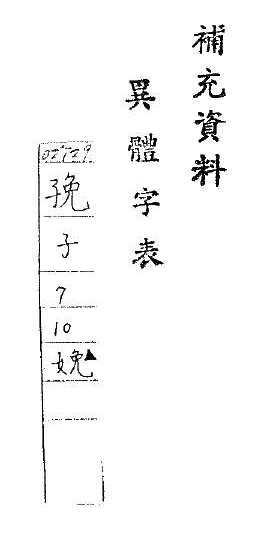 補充資料
異體字表
02729
㝃
子
7
10
娩▲